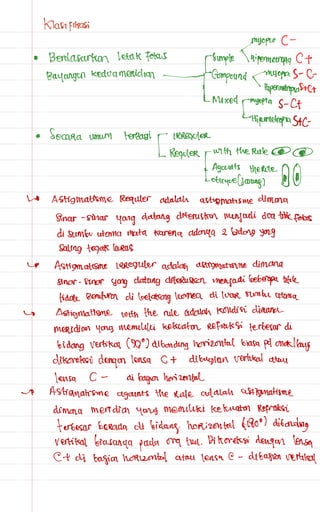 Klasifikasi
myopic C-
• Berdasarkan letak fokus Simple Hipermetropia C+
Bayangan kedua meridian Compound myopia S- C-
Hipermetropia S+C+
Mixed myopia S-C+
Hipermetropia S+C-
• Secara umum terbagi IRREGULER
Reguler with the Rule
Againts the Rule
oblique (jarang)
Astigmatisme Reguler adalah astigmatisme dimana
sinar-sinar yang datang diteruskan menjadi dua titik fokus
di sumbu utama mata karena adanya 2 bidang yang
saling tegak lurus
Astigmatisme irreguler adalah astigmatisme dimana
sinar-sinar yang datang diteruskan menjadi beberapa titik
tidak beraturan di belakang kornea di luar sumbu utama
Astigmatisme with the rule adalah kondisi dimana
meridian yang memiliki kekuatan Refraksi terbesar di
bidang vertikal (90°) dibanding horizontal biasa pd anak/bayi
dikoreksi dengan lensa C+ dibagian vertikal atau
lensa C- di bagian horizontal
Astigmatisme againts the Rule adalah astigmatisme
dimana meridian yang memiliki kekuatan Refraksi
terbesar berada di bidang horizontal (180°) dibanding
vertikal biasanya pada org tua. Dikoreksi dengan lensa
C+ di bagian horizontal atau lensa C- dibagian vertikal